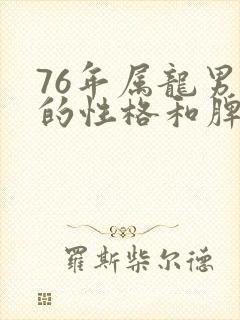 76年属龍男
的性格和脾
羅斯柴尔德